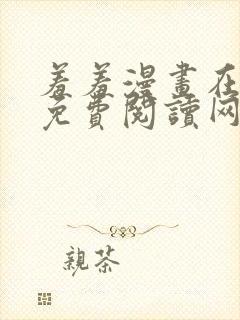 羞羞漫畫在
免費閱讀网
親茶